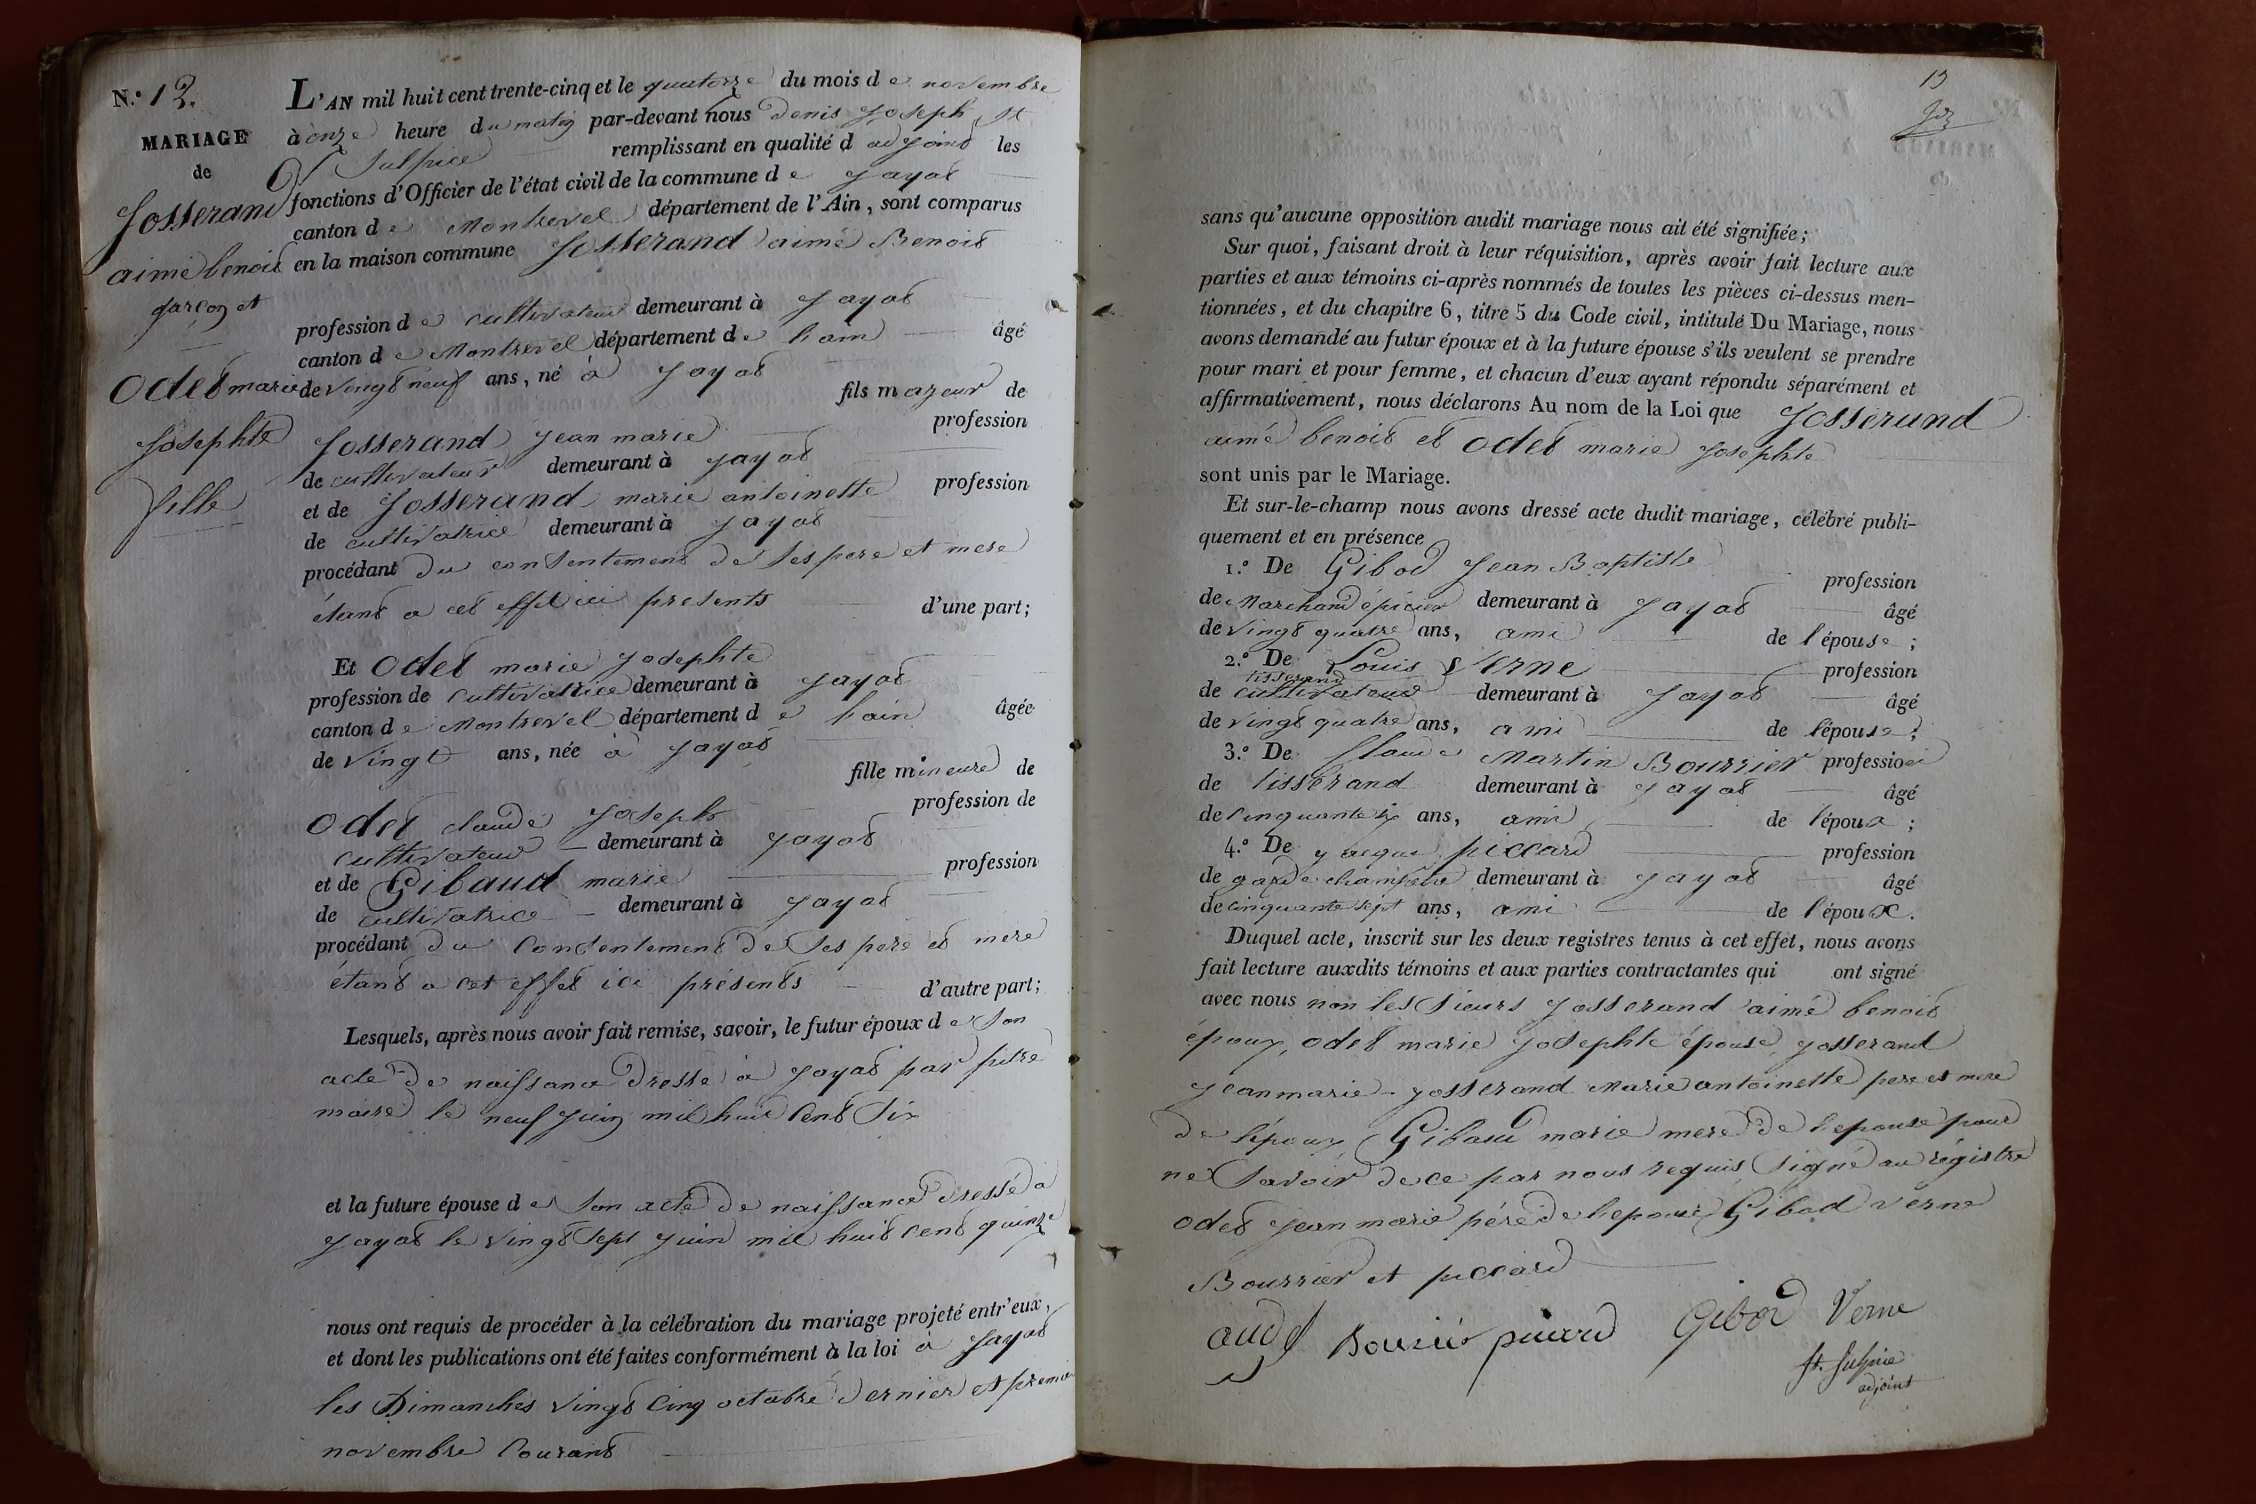 N.º 12.
MARIAGE
de
Josserand
aimé benoit
garçon et
Odet marie
Josephte
fille
L'AN mil huit cent trente-cinq et le quatorze du mois de novembre
à onze heure du matin par-devant nous Denis Joseph St
Sulpice remplissant en qualité d adjoint les
fonctions d'Officier de l'état civil de la commune de Jayat
canton de Montrevel département de l'Ain, sont comparus
en la maison commune Josserand aimé Benoit
profession de cultivateur demeurant à Jayat
canton de Montrevel département de lain âgé
de vingt neuf ans, né à Jayat
fils majeur de
Josserand Jean marie profession
de cultivateur demeurant à Jayat
et de Josserand marie antoinette profession
de cultivatrice demeurant à Jayat
procédant du consentement de ses pere et mere
étant a cet effet ici presents d'une part;
Et Odet marie Josephte
profession de cultivatrice demeurant à Jayat
canton de Montrevel département de lain âgée
de vingt ans, née à Jayat
fille mineure de
Odet claude Joseph profession de
cultivateur demeurant à Jayat
et de Gibaud marie profession
de cultivatrice demeurant à Jayat
procédant du consentement de ses pere et mere
étant a cet effet ici présents d'autre part;
Lesquels, après nous avoir fait remise, savoir, le futur époux de son
acte de naissance dressé à Jayat par
maire le neuf Juin mil huit cent six
et la future épouse de son acte de naissance dressé a
Jayat le vingt sept Juin mil huit cent quinze
nous ont requis de procéder à la célébration du mariage projeté entr'eux,
et dont les publications ont été faites conformément à la loi à Jayat
les Dimanches vingt cinq octobre dernier et premier
novembre courant
13
sans qu'aucune opposition audit mariage nous ait été signifiée;
Sur quoi, faisant droit à leur réquisition, après avoir fait lecture aux
parties et aux témoins ci-après nommés de toutes les pièces ci-dessus men-
tionnées, et du chapitre 6, titre 5 du Code civil, intitulé Du Mariage, nous
avons demandé au futur époux et à la future épouse s'ils veulent se prendre
pour mari et pour femme, et chacun d'eux ayant répondu séparément et
affirmativement, nous déclarons Au nom de la Loi que Josserand
aimé benoit et Odet marie Josephte
sont unis par le Mariage.
Et sur-le-champ nous avons dressé acte dudit mariage, célébré publi-
quement et en présence
1.º De Gibod Jean Baptiste profession
de Marchand épicier demeurant à Jayat âgé
de vingt quatre ans, ami de l'épouse;
2.º De Louis Verne profession
tisserand
de cultivateur demeurant à Jayat âgé
de vingt quatre ans, ami de l'épouse;
3.º De Claude Martin Bourrier profession
de tisserand demeurant à Jayat âgé
de cinquante six ans, ami de l'époux;
4.º De Jacque piccard profession
de garde champêtre demeurant à Jayat âgé
de cinquante sept ans, ami de l'époux.
Duquel acte, inscrit sur les deux registres tenus à cet effet, nous avons
fait lecture auxdits témoins et aux parties contractantes qui ont signé
avec nous non les sieurs Josserand aimé benoit
époux, odet marie Josephte épouse, Josserand
Jean marie - Josserand Marie antoinette pere et mere
de l'époux, Gibaud marie mere de lepouse pour
ne savoir de ce par nous requis signé au régistre
odet Jean marie pére de lepouse Gibod verne
Bourrier et piccard
audet Bourier picard Gibod Verne
St. Sulpice
adjoint